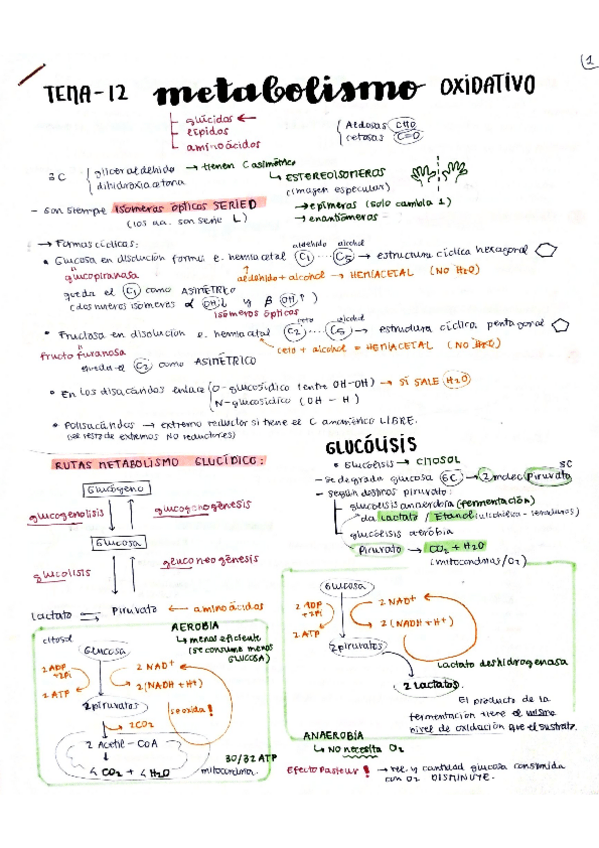 1
TEMA-12 metabolismo OXIDATIVO
glúcidos ←
lípidos
aminoácidos
Aldosas CHO
cetosas C=O
3C gliceraldehido → tienen C asimétrico
dihidroxiacetona
↳ ESTEREOISOMEROS
(imagen especular)
→ epímeros (solo cambia 1)
→ enantiómeros
- son siempre isómeros ópticos SERIE D
(los aa. son serie L)
→ Formas cíclicas:
aldehido alcohol
• Glucosa en disolución forma e. hemiacetal C1 ... C5 → estructura cíclica hexagonal
glucopiranosa
aldehido + alcohol → HEMIACETAL (NO H2O)
queda el C1 como ASIMÉTRICO
(dos nuevos isómeros α OH↓ y β OH↑)
isómeros ópticos
ceto alcohol
• Fructosa en disolución e. hemiacetal C2 ... C5 → estructura cíclica pentagonal
fructofuranosa
ceto + alcohol = HEMIACETAL (NO H2O)
queda el C2 como ASIMÉTRICO
• En los disacáridos enlace O-glucosídico (entre OH-OH) → SÍ SALE H2O
N-glucosídico (OH - H)
• Polisacáridos → extremo reductor si tiene el C anomérico LIBRE.
(el resto de extremos NO reductores)
RUTAS METABOLISMO GLUCÍDICO:
Glucógeno
glucogenolisis
glucogenogénesis
Glucosa
glucolisis
gluconeogénesis
lactato ⇌ piruvato ← aminoácidos
GLUCÓLISIS
• Glucólisis → CITOSOL
3C
- se degrada glucosa 6C → 2 moléc Piruvato
- según destinos piruvato:
glucólisis anaerobia (fermentación)
da Lactato / Etanol (alcohólica - levaduras)
glucólisis aeróbia
Piruvato → CO2 + H2O
(mitocondrias/O2)
AEROBIA
↳ menos eficiente
(se consume menos
GLUCOSA)
citosol
Glucosa
2 ADP
+2Pi
2 ATP
2 NAD+
2(NADH + H+)
2 piruvatos
se oxida!
→ 2CO2
2 Acetil-CoA
30/32 ATP
4 CO2 + 4 H2O
mitocondria.
Glucosa
2 ADP
+2Pi
2 ATP
2 NAD+
2 (NADH + H+)
2 piruvatos
Lactato deshidrogenasa
2 Lactatos.
El producto de la
fermentación tiene el mismo
nivel de oxidación que el sustrato.
ANAEROBIA
↳ NO necesita O2
Efecto Pasteur! → vel. y cantidad glucosa consumida
con O2 DISMINUYE.